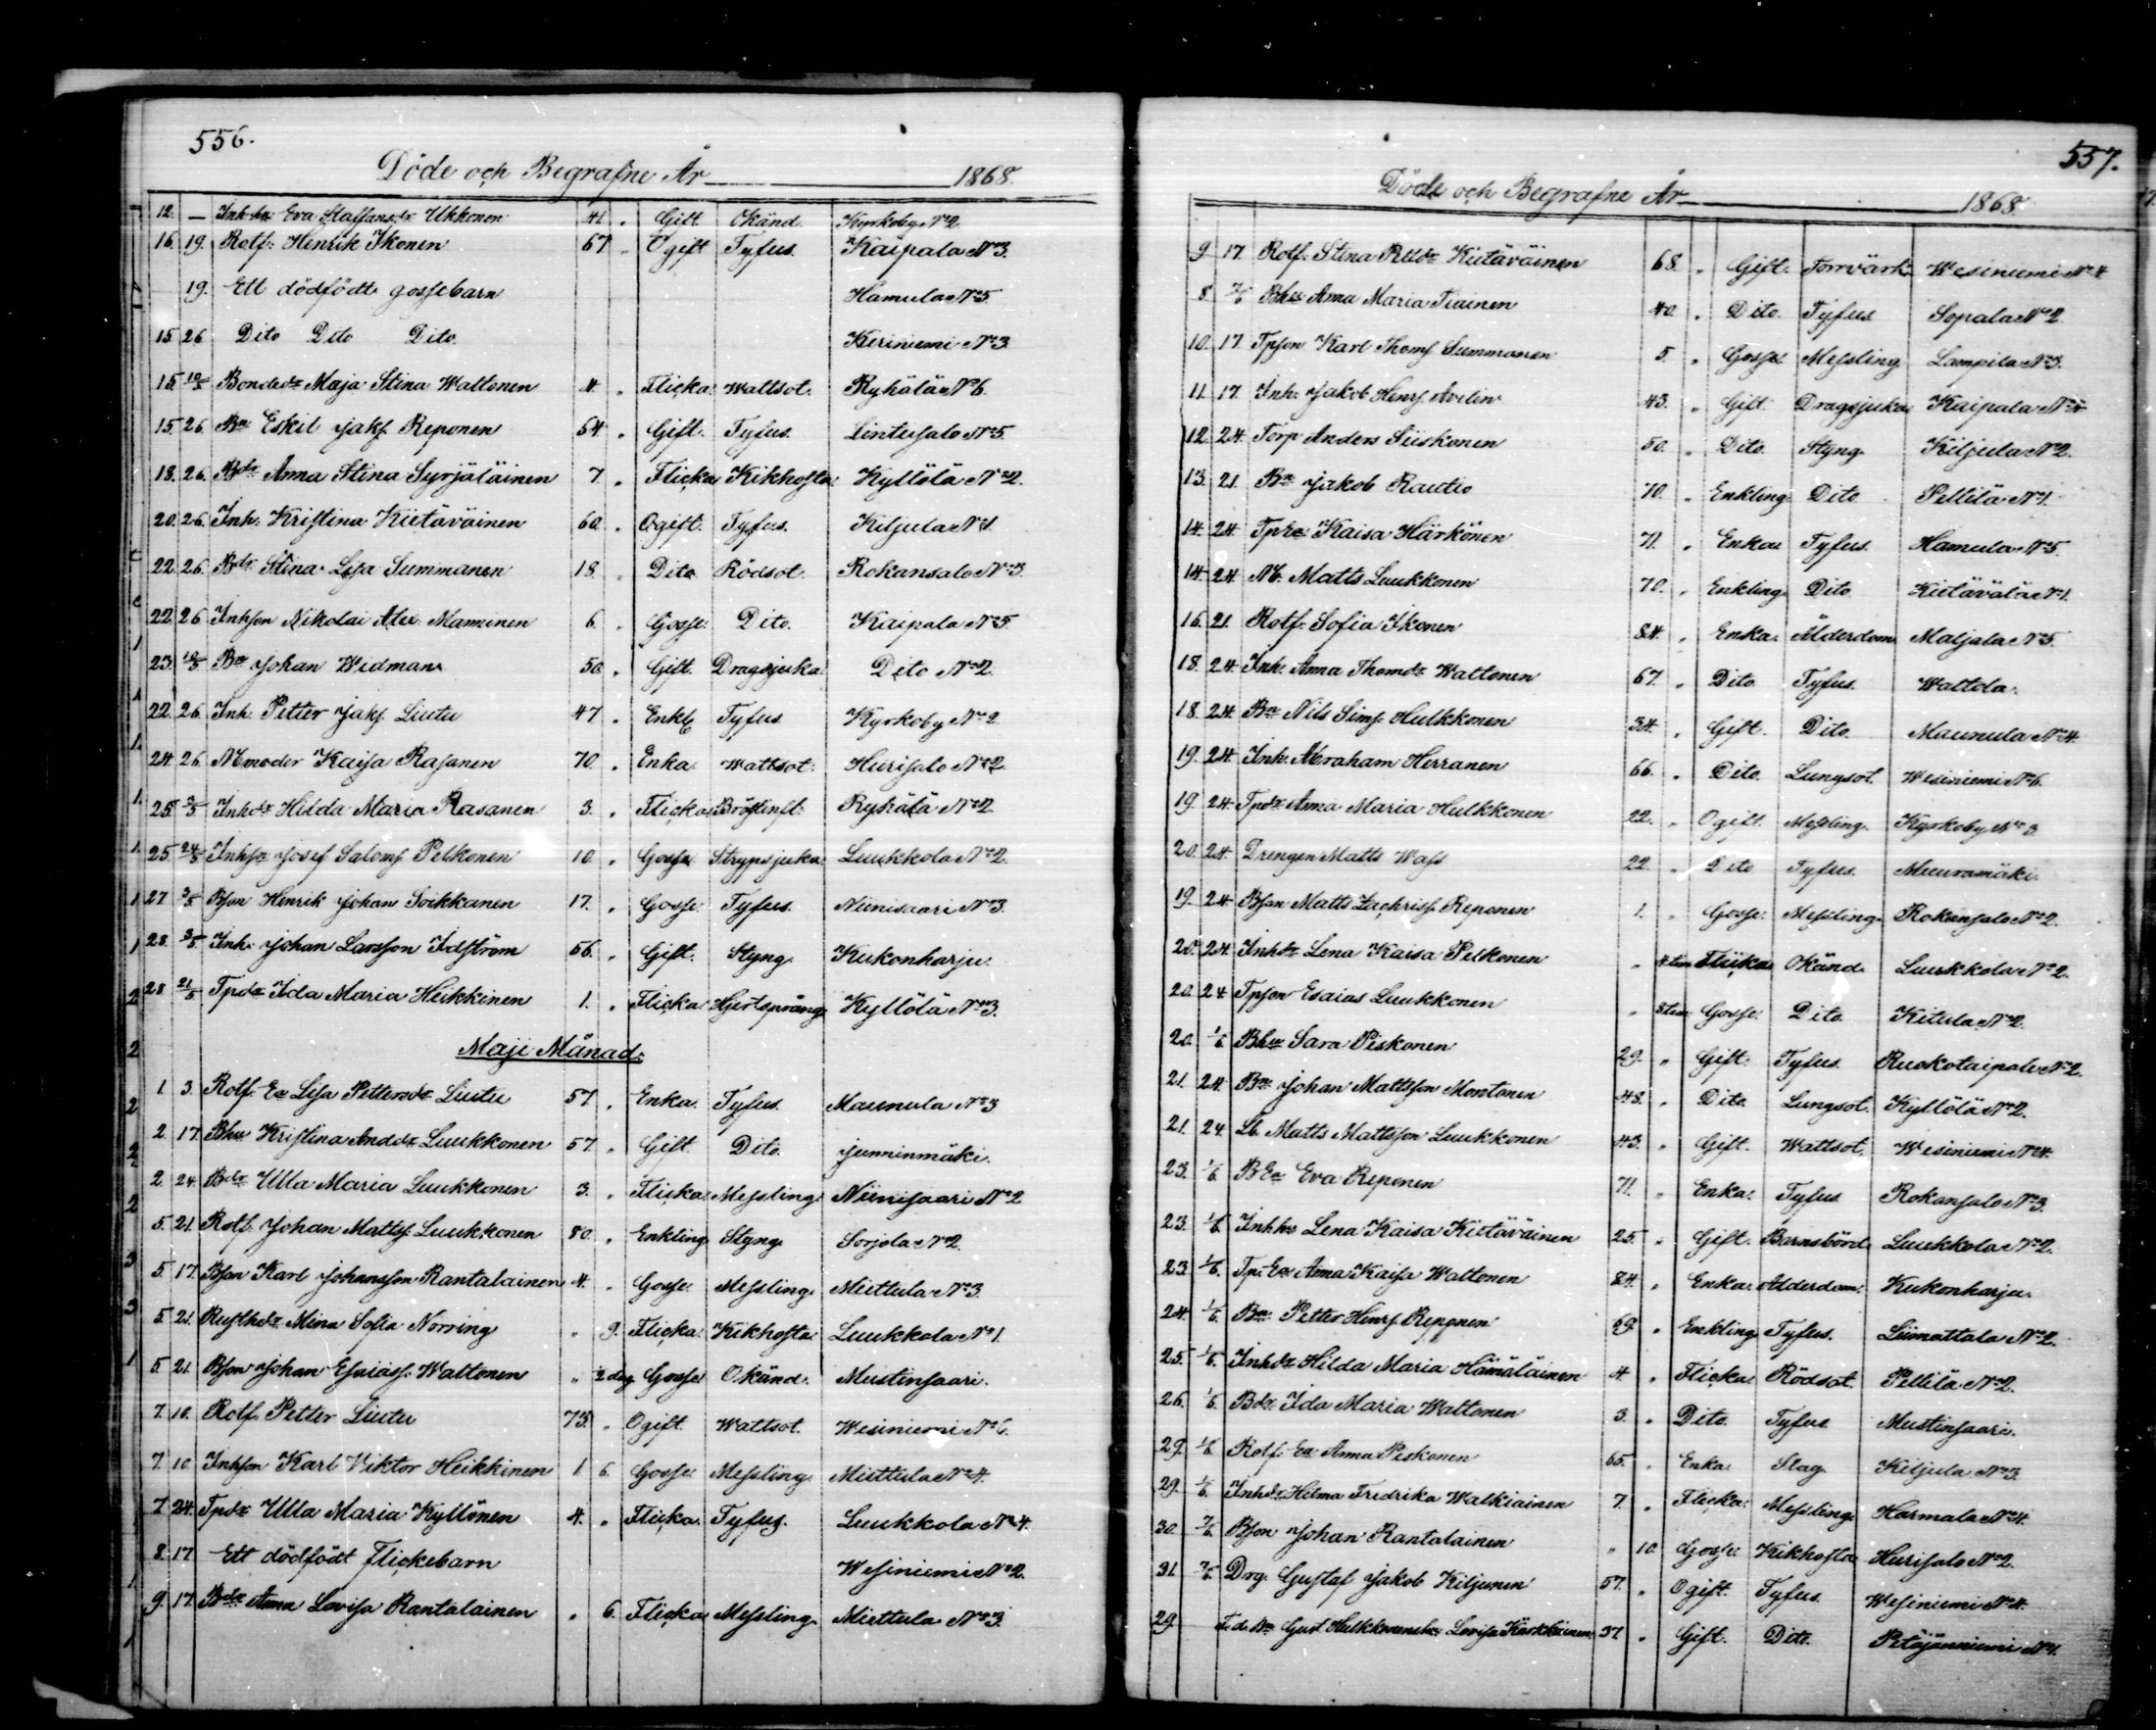 556.
Döde och Begrafne År 1868.
12. — Inh. hu Eva Staffansdr Ukkonen 41 " Gift Okänd Kyrkoby No 2
16. 19. Rotf: Henrik Ikonen 67 " Ogift Tyfus. Kaipala No 3.
19. Ett dödfödt gossebarn Hamula No 5
15 26 Dito Dito Dito. Kiriniemi No 3
15 10/5 Bondedr Maja Stina Wattonen 4 " Flicka Wattsot. Ryhälä No 6.
15. 26. Bn Eskil Jakf. Reponen 64 " Gift. Tyfus. Lintusalo No 5.
18. 26. Bdr Anna Stina Syrjäläinen 7 " Flicka Kikhosta Kyllölä No 2.
20. 26. Inh: Kristina Kietäväinen 60 " Ogift. Tyfus. Kiljula No 1.
22 26. Bdr Stina Lisa Summanen 18 " Dito Rödsot. Rokansalo No 3.
22 26 Inhson Nikolai Alex. Manninen 6. " Gosse: Dito. Kaipala No 5
23. 10/5 Bn Johan Widman 50 " Gift. Dragsjuka Dito No 2.
22. 26. Inh. Petter Jakf. Liutu 47 " Enkl Tyfus. Kyrkoby No 2
24. 26. N Emoder Kaisa Rasanen 70. " Enka. Wattsot. Hurisalo No 2.
25. 3/5 Inhdr Hilda Maria Rasanen 3. " Flicka Bröstinfl. Ryhälä No 2.
25. 24/5 Inhsn Josef Salomf. Pelkonen 10. " Gosse Strypsjuka Luukkola No 2.
27 3/5 Bson Henrik Johan Soikkanen 17. " Gosse: Tyfus. Niinisaari No 3.
28. 3/5 Inh. Johan Larsson Idström 56. " Gift. Styng. Kukonharju
28 21/5 Tpdr Ida Maria Heikkinen 1. " Flicka Hjertsprång Kyllölä No 3.
Maji Månad:
1 3. Rotf. Ea Lisa Pettersdr Liutu 57 " Enka. Tyfus. Maunula No 3
2. 17. Bhu Kristina Anddr Luukkonen 57. " Gift. Dito. Junninmäki.
2. 24. Bdr Ulla Maria Luukkonen 3. " Flicka. Messling Niinisaari No 2
5. 21. Rotf. Johan Mattsf. Luukkonen 80. " Enkling Styng Sorjola No 2.
5. 17. Bson Karl Johansson Rantalainen 4. " Gosse: Messling. Miettula No 3.
5. 21. Rusthdr Mina Sofia Norring " 9. Flicka. Kikhosta Luukkola No 1.
5. 21. Bson Johan Esaiasf. Wattonen " 2 dag Gosse Okänd. Mustinsaari.
7. 10. Rotf. Petter Liutu 73. " Ogift. Wattsot. Wesiniemi No 6.
7. 10. Inhson Karl Viktor Heikkinen 1 6. Gosse Messling Miettula No 4.
7 24. Tpdr Ulla Maria Kyllönen 4. " Flicka. Tyfus. Luukkola No 4.
8. 17 Ett dödfödt Flickebarn Wesiniemi No 2.
9. 17. Bdr Anna Lovisa Rantalainen " 6. Flicka Messling Miettula No 3.
557.
Döde och Begrafne År 1868
9 17. Rotf. Stina Kietäväinen 68. " Gift. Torrvärk Wesiniemi No 4
8 7/6 Bhu Anna Maria Tiainen 40. " Dito. Tyfus Sopala No 2.
10. 17. Tpson Karl Thomf. Summanen 5. " Gosse Messling Lampila No 3.
11. 17. Inh. Jakob Henrf. Avelin 43. " Gift. Dragsjuka Kaipala
12. 24. Torp Anders Siiskonen 50. " Dito. Styng Kiljula No 2.
13. 21. Bn Jakob Rautio 70. " Enkling Dito Pellilä No 1.
14. 24. Tp Ea Kaisa Härkönen 71. " Enka Tyfus Hamula No 5.
14. 24 Matts Luukkonen 70. " Enkling Dito Kietävälä No 1.
16. 21. Rotf. Sofia Ikonen 84. " Enka Ålderdom Maljala No 5.
18. 24. Inh. Anna Thomdr Wattonen 67. " Dito Tyfus. Wattola.
18. 24. Bn Nils Simf. Hulkkonen 34. " Gift. Dito. Maunula No 4.
19. 24. Inh. Abraham Herranen 66. " Dito. Lungsot. Wesiniemi No 6.
19. 24. Tpdr Anna Maria Hulkkonen 22. " Ogift. Messling. Kyrkoby No 3
20. 24. Drengen Matts Wass 22. " Dito Tyfus. Muuramäki
19. 24. Bson Matts Zachrisf. Reponen 1. " Gosse. Messling Rokansalo No 2.
20. 24. Inhdr Lena Kaisa Pelkonen " 4 tim Flicka Okänd. Luukkola No 2.
20. 24. Tpson Esaias Luukkonen " 8 tim Gosse. Dito. Kitula No 2.
20. 1/6. Bhu Sara Piskonen 29. " Gift. Tyfus. Ruokotaipale No 2.
21. 24. Bn Johan Mattsson Montonen 48. " Dito. Lungsot. Kyllölä No 2.
21. 24. Lb. Matts Mattsson Luukkonen 43. " Gift. Wattsot. Wesiniemi No 4.
23. 1/6. B Ea Eva Reponen 71. " Enka. Tyfus Rokansalo No 3.
23. 1/6. Inhhu Lena Kaisa Kietäväinen 25. " Gift. Barnsbörd Luukkola No 2.
23. 1/6. Tp. Ea Anna Kaisa Wattonen 84. " Enka. Ålderdom. Kukonharju.
24. 1/6. Bn Petter Henrf. Reponen 69. " Enkling Tyfus. Liimattala No 2.
25. 1/6. Inhdr Hilda Maria Hämäläinen 4. " Flicka. Rödsot. Pellilä No 2.
26. 1/6. Bdr Ida Maria Wattonen 3. " Dito. Tyfus Mustinsaari.
29. 1/6. Rotf. Ea Anna Piskonen 65. " Enka. Slag Kiljula No 3.
29. 1/6. Inhdr Hilma Fredrika Walkiainen 7. " Flicka. Messling Harmala No 4.
30. 7/6. Bson Johan Rantalainen " 10. Gosse Kikhosta Hurisalo No 2.
31. 7/6. Drg. Gustaf Jakob Kiljunen 57. " Ogift. Tyfus. Wesiniemi No 4.
29. F. d. Bn Gust Hulkkonens hu Lovisa Kärkkäinen 37. " Gift. Dito. Petäjänniemi No 1.